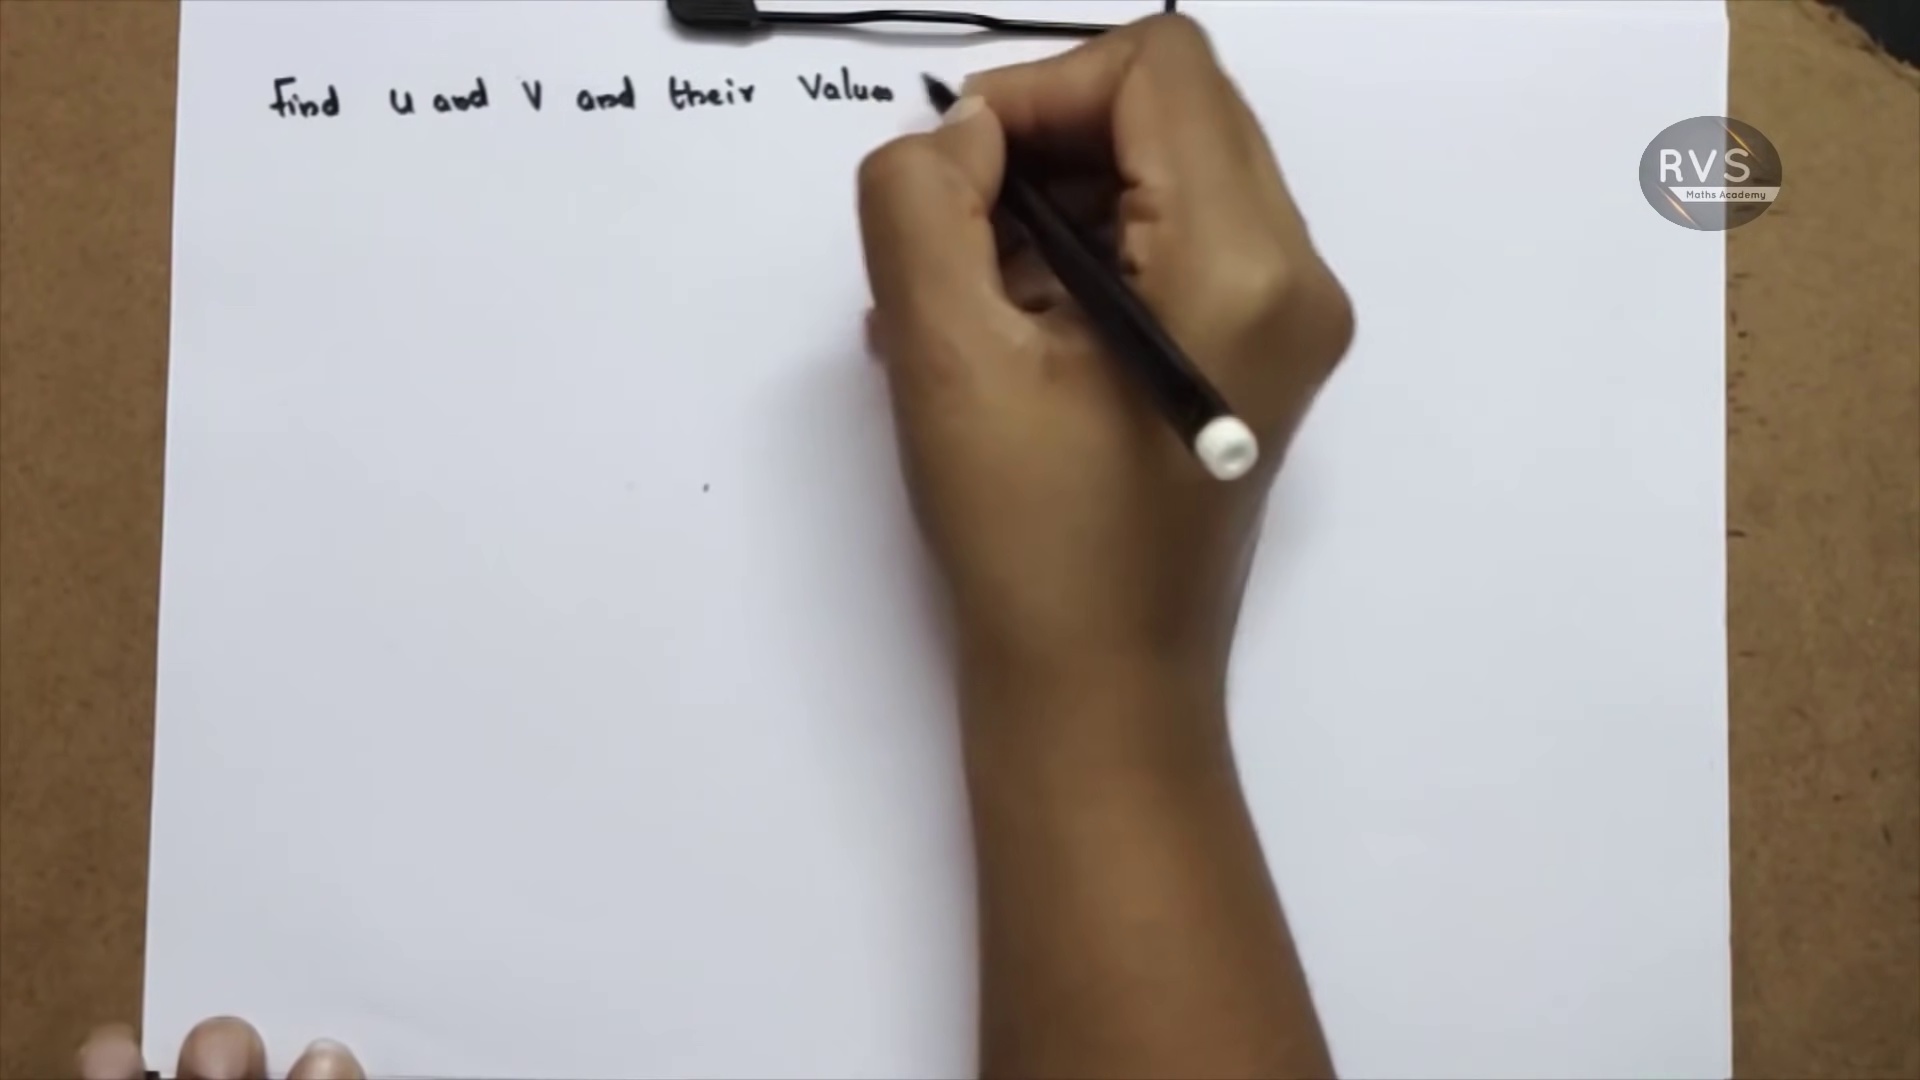 Find u and v and their Values
RVS
Maths Academy